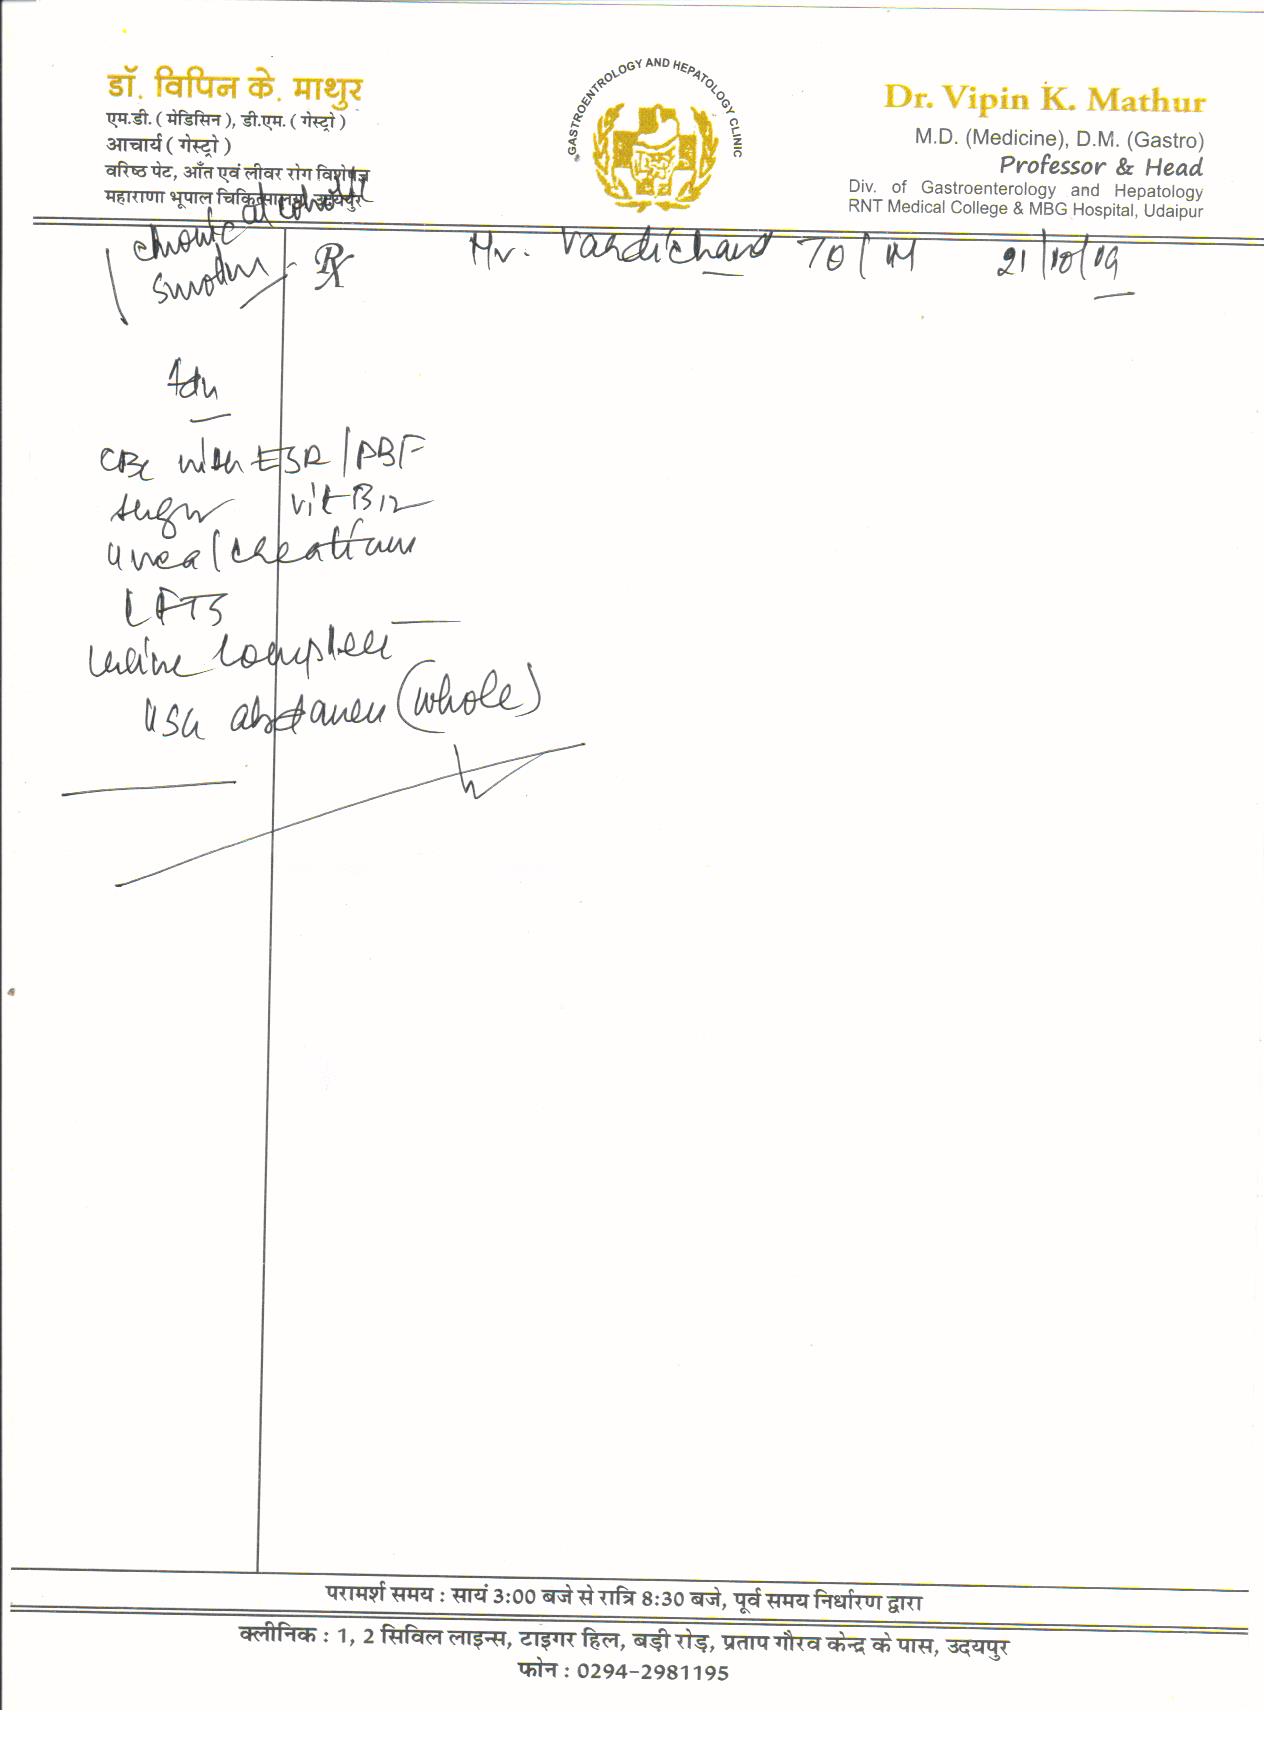 डॉ. विपिन के. माथुर
एम.डी. ( मेडिसिन ), डी.एम. ( गेस्ट्रो )
आचार्य ( गेस्ट्रो )
वरिष्ठ पेट, आँत एवं लीवर रोग विशेषज्ञ
महाराणा भूपाल चिकित्सालय, उदयपुर
GASTROENTROLOGY AND HEPATOLOGY CLINIC
Dr. Vipin K. Mathur
M.D. (Medicine), D.M. (Gastro)
Professor & Head
Div. of Gastroenterology and Hepatology
RNT Medical College & MBG Hospital, Udaipur
chronic alcoholic
smoker
Rx
Mr. Vardichand 70/M 21/10/19
Adv
CBC with ESR/PBF
sugar vit B12
urea/creatinine
LFTS
urine complete
USG abdomen (whole)
परामर्श समय : सायं 3:00 बजे से रात्रि 8:30 बजे, पूर्व समय निर्धारण द्वारा
क्लीनिक : 1, 2 सिविल लाइन्स, टाइगर हिल, बड़ी रोड़, प्रताप गौरव केन्द्र के पास, उदयपुर
फोन : 0294-2981195